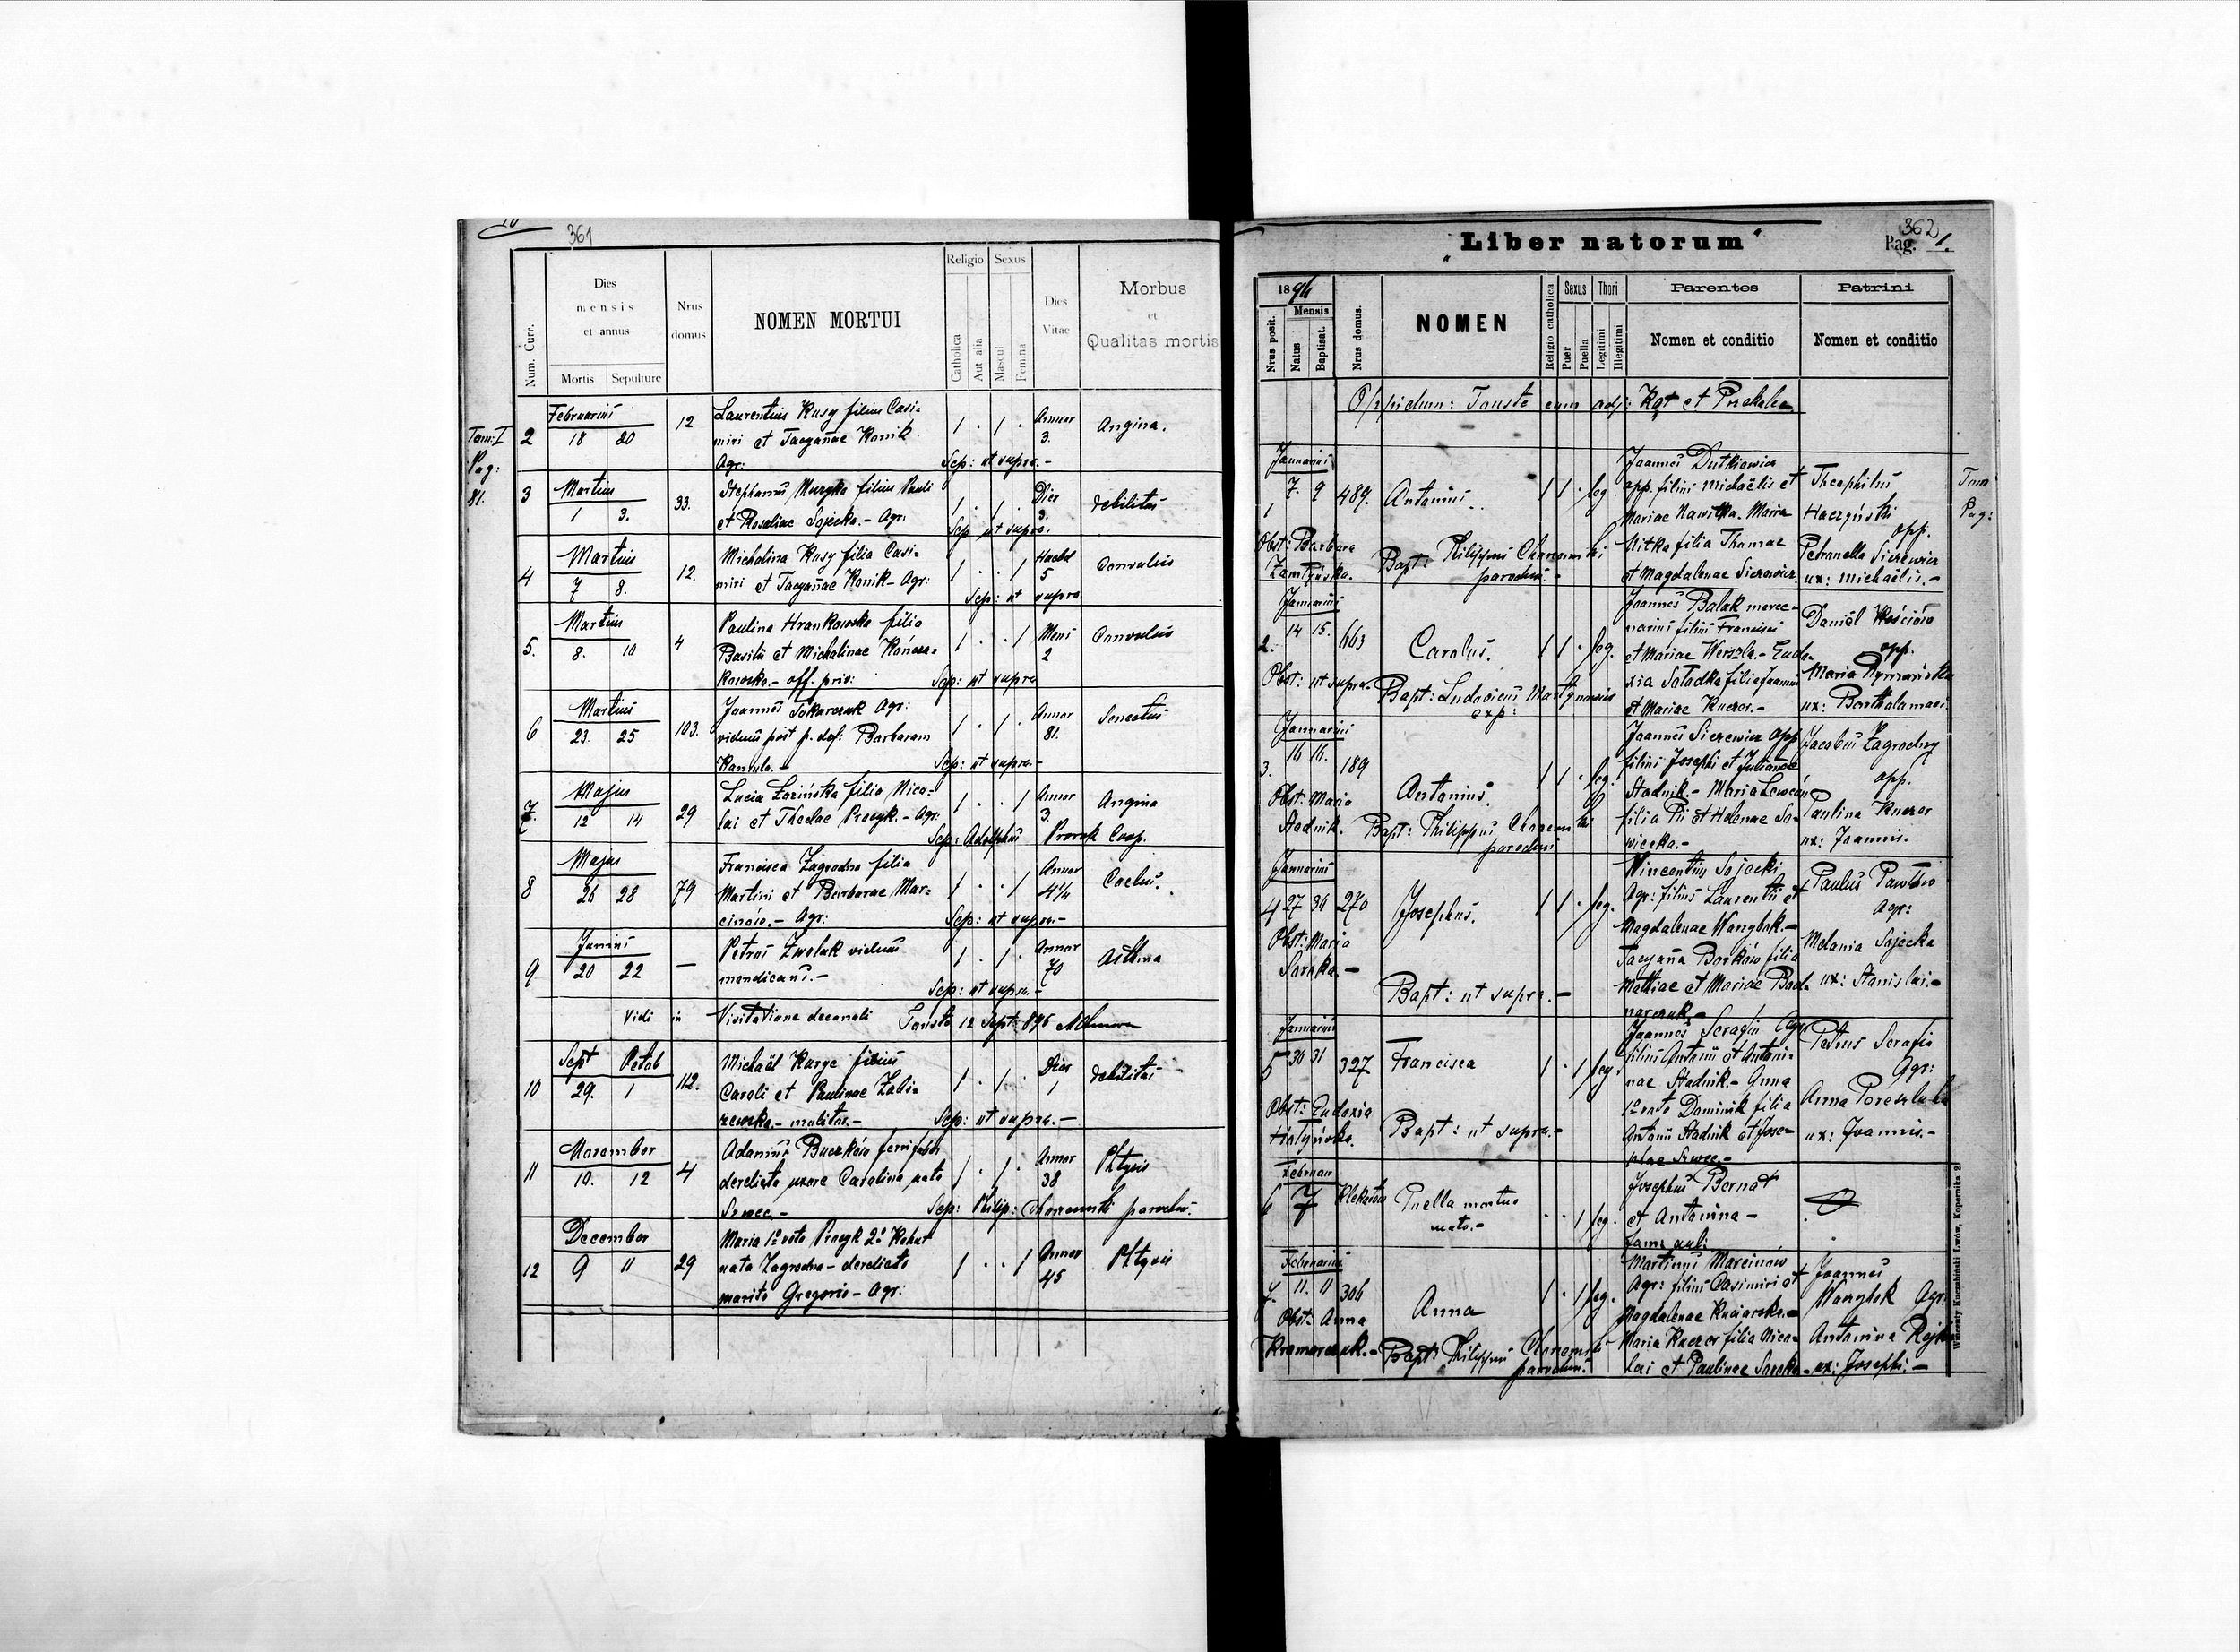 361
Dies
mensis
et annus
Religio
Sexus
Num. Curr.
Nrus
domus
NOMEN MORTUI
Dies
Vitae
Morbus
et
Qualitas mortis
Mortis
Sepulture
Catholica
Aut alia
Mascul
Femina
Tom: I
Pag:
81.
2
Februarius
18 20
12
Laurentius Kusy filius Casi-
miri et Tacyañae Konik
Agr:
1 . 1 .
Annor
3.
Angina.
Sep: ut supra.-
3
Martius
1 3.
33.
Stephanus Muzyka filius Pauli
et Rosaliae Sojecka.- Agr:
1 . 1 .
Dier
3.
debilitas
Sep ut supra.
4
Martius
7 8.
12.
Michalina Kusy filia Casi-
miri et Tacyañae Konik - Agr:
1 . . 1
Hebd
5
Convulsio
Sep: ut supra
5.
Martius
8. 10
4
Paulina Hrankowska filia
Basilii et Michalinae
kowska.- off. priv:
1 . . 1
Mens
2
Convulsio
Sep: ut supra
6
Martius
23. 25
103.
Joannes Tokarczuk Agr:
viduus post p. def: Barbaram
1 . 1 .
Annor
81.
Senectus
Sep: ut supra.-
7.
Majus
12 14
29
Lucia Łozińska filia Nico-
lai et Theclae Procyk.- Agr:
1 . . 1
Annor
3.
Angina
Sep: Adolphus Prorok Coop.
8
Majus
26 28
79
Francisca Zagrodna filia
Martini et Barbarae Mar-
cinów.- Agr:
1 . . 1
Annor
4 1/4
Sep: ut supra.-
9
Junius
20 22
—
Petrus Zwolak viduus
mendicans.-
1 . 1 .
Annor
70
Asthma
Sep: ut supra.-
Vidi in Visitatione decanali Touste 12 Sept: 895
10
Sept Octob
29. 1
112.
Michaël Kurge filius
Caroli et Paulinae Zabi-
rzewska.- molitor.-
1 . 1 .
Dier
1
debilitas
Sep: ut supra.-
11
November
10. 12
4
Adamus Buczków ferrifaber
derelicta uxore Carolina nata
Szwec -
1 . 1 .
Annor
38
Phtysis
Sep: Philip: Charzewski parochus.
12
December
9 11
29
Maria 1o voto Procyk 2o Kohut
nata Zagrodna - derelicto
marito Gregorio - Agr:
1 . . 1
Annor
45
Phtysis
"Liber natorum"
362
Pag. 1.
1896
Mensis
Nrus posit.
Natus
Baptisat.
Nrus domus.
NOMEN
Religio catholica
Sexus
Puer
Puella
Thori
Legitimi
Illegitimi
Parentes
Nomen et conditio
Patrini
Nomen et conditio
Oppidum: Touste cum adj: Kąt et Pichałka
Januarius
1
7. 9
489.
Antonius
1 1 . leg.
Joannes Dutkiewicz
opp. filius Michaëlis et
Mariae Nawitka. Maria
Witka filia Thomae
et Magdalenae Sierewicz.
Theophilus
Haczyński
opp.
Petronella Sierewicz
ux: Michaëlis.-
Obst: Barbara
Bapt: Philippus Charzewski
parochus -
Tom
Pag:
Januarius
2.
14 15.
663
Carolus.
1 1 . leg.
Joannes Balak merce-
narius filius Francisci
et Mariae Werszla.- Eudo-
xia Sołodka filia Joannis
et Mariae Kuczer.-
Daniël Kościów
opp.
Maria Rymańska
ux: Bartholomaei.
Obst: ut supra.
Bapt: Ludovicus Martynowicz
exp:
Januarius
3.
16 16.
189
Antonius.
1 1 . leg.
Joannes Sierewicz opp
filius Josephi et Julianae
Stadnik.- Maria Lewców
filia Pii et Helenae Sa-
wicka.-
Jacobus Zagrodny
opp.
Paulina Kuczer
ux: Joannis.
Obst: Maria
Stadnik.
Bapt: Philippus Charzewski
parochus
Januarius
4
27 30
270
Josephus.
1 1 . leg.
Vincentius Sojecki
Agr: filius Laurentii et
Magdalenae Warzybok.-
Tacyaña Borków filia
Mathiae et Mariae Bod-
narczuk.-
Paulus Pawłów
Agr:
Melania Sojecka
ux: Stanislai.-
Obst: Maria
Soroka.-
Bapt: ut supra.-
Januarius
5
30 31
327
Francisca
1 . 1 leg.
Joannes Serafin Agr
filius Antonii et Antoni-
nae Stadnik.- Anna
1o voto Dominik filia
Antonii Stadnik et Jose-
phae Szwec.-
Petrus Serafin
Agr:
Anna
ux: Joannis.-
Obst: Eudoxia
Hołyńska.
Bapt: ut supra.-
Februar
6
7
Klekotów
Puella mortuo
nata.-
. . 1 leg.
Josephus Bernat
et Antonina -
fam: auli:
Februarius
7.
11. 11
306
Anna
1 . 1 leg.
Martinus Marcinów
Agr: filius Casimiri et
Magdalenae Kuciarska.-
Maria Kuczer filia Nico-
lai et Paulinae Soroka -
Joannes
Warzybok Agr:
Antonina
ux: Josephi.-
Obst: Anna
Kramarczuk.-
Bapt: Philippus Charzewski
parochus.
Wincenty Kuczabiński Lwów, Kopernika 2